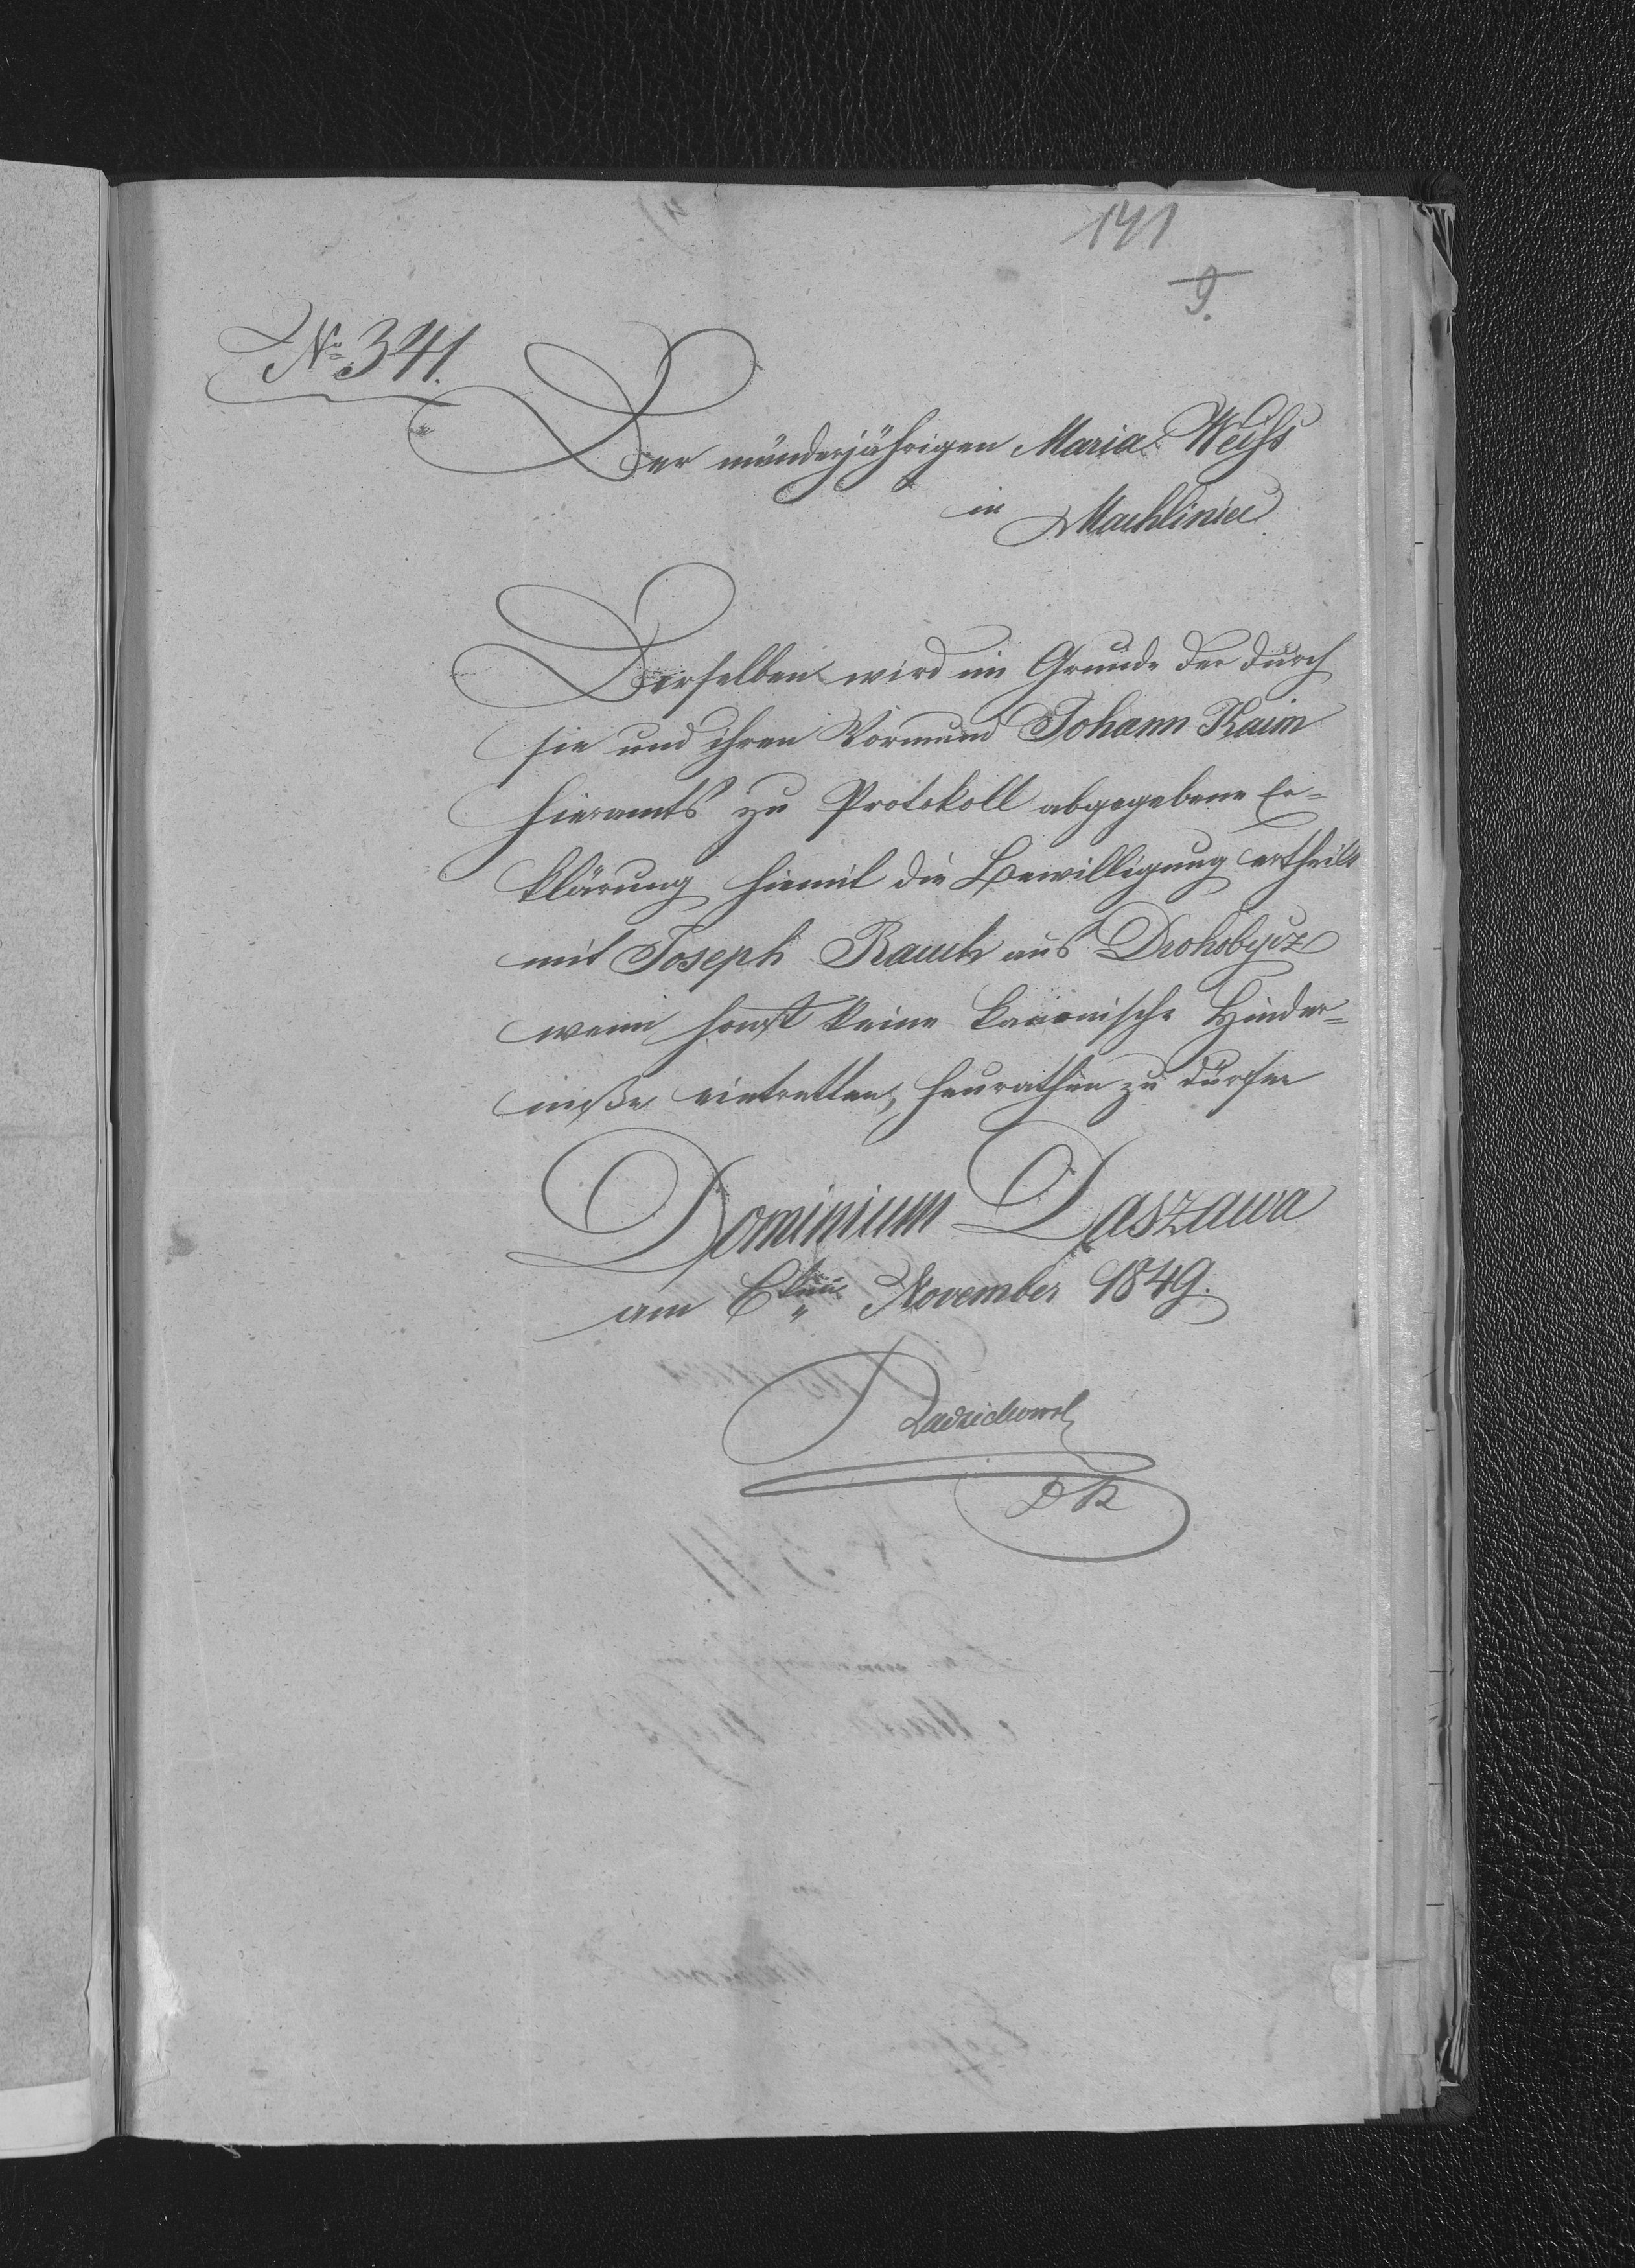 141
9.
No 341.
Der münderjährigen Maria Weiss
in Machliniec
Derselben wird im Grunde der durch
sie und ihren Vormund Johann Kaim
hieramts zu Protokoll abgegebene Er=
klärung hiemit die Bewilligung ertheilt
mit Joseph Rauch aus Drohobycz
wenn sonst keine kanonische Hinder=
niße eintretten, heurathen zu dürfen
Dominium Daszawa
am November 1849.